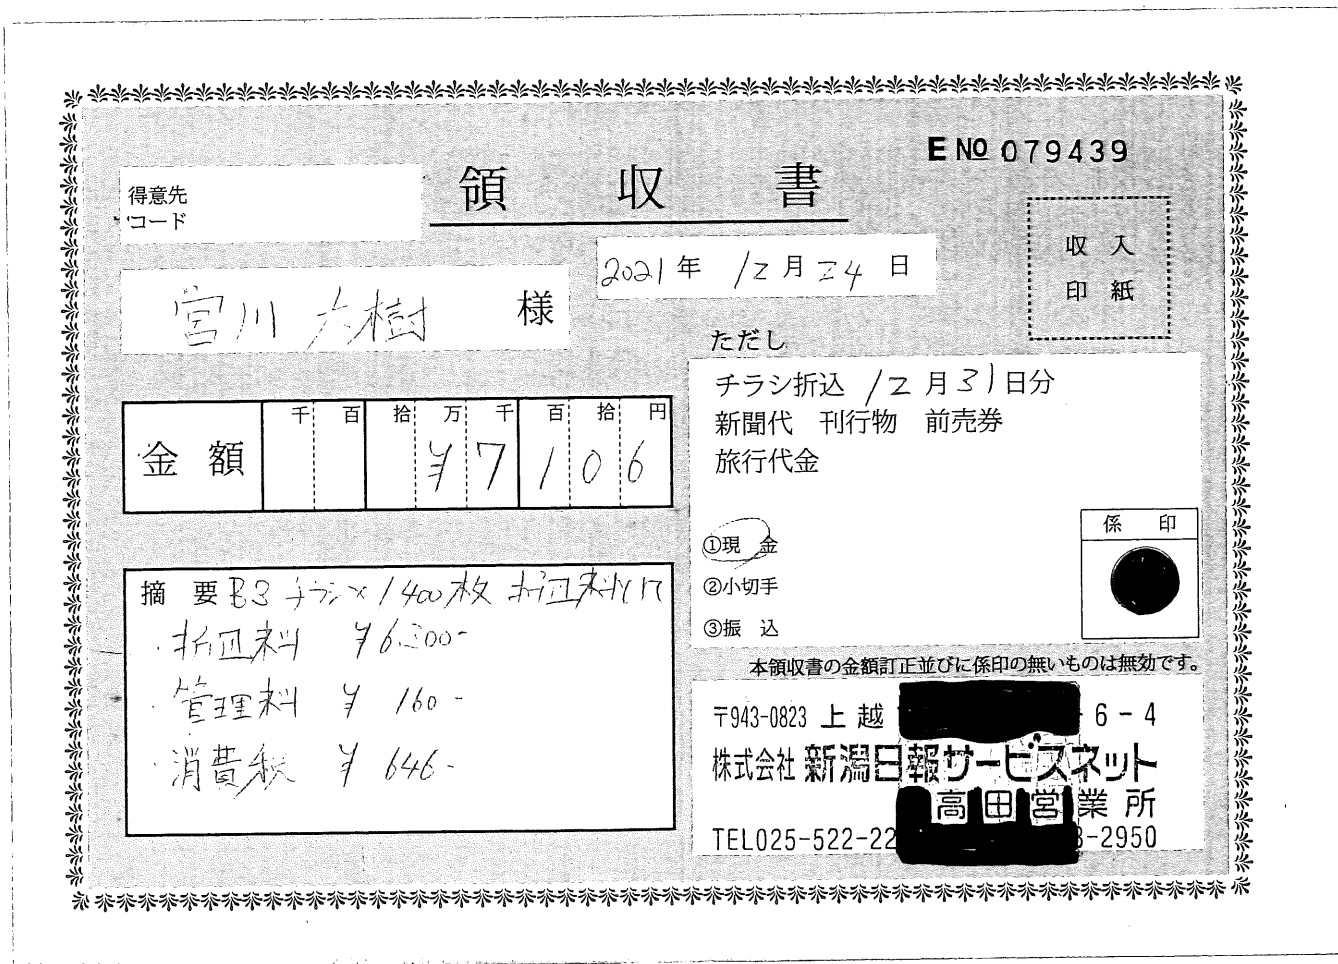 E No 079439
領収書
得意先
コード
2021年 12月24日
収入
印紙
宮川 大樹 様
ただし
チラシ折込 12月31日分
新聞代 刊行物 前売券
旅行代金
金額
千 百 拾 万 千 百 拾 円
¥7106
①現金
②小切手
③振込
係印
摘要 B3 チラシ×1400枚 折込料として
・折込料 ¥6,300-
・管理料 ¥ 160-
・消費税 ¥ 646-
本領収書の金額訂正並びに係印の無いものは無効です。
〒943-0823 上越 6-4
株式会社 新潟日報サービスネット
高田営業所
TEL025-522-22 3-2950